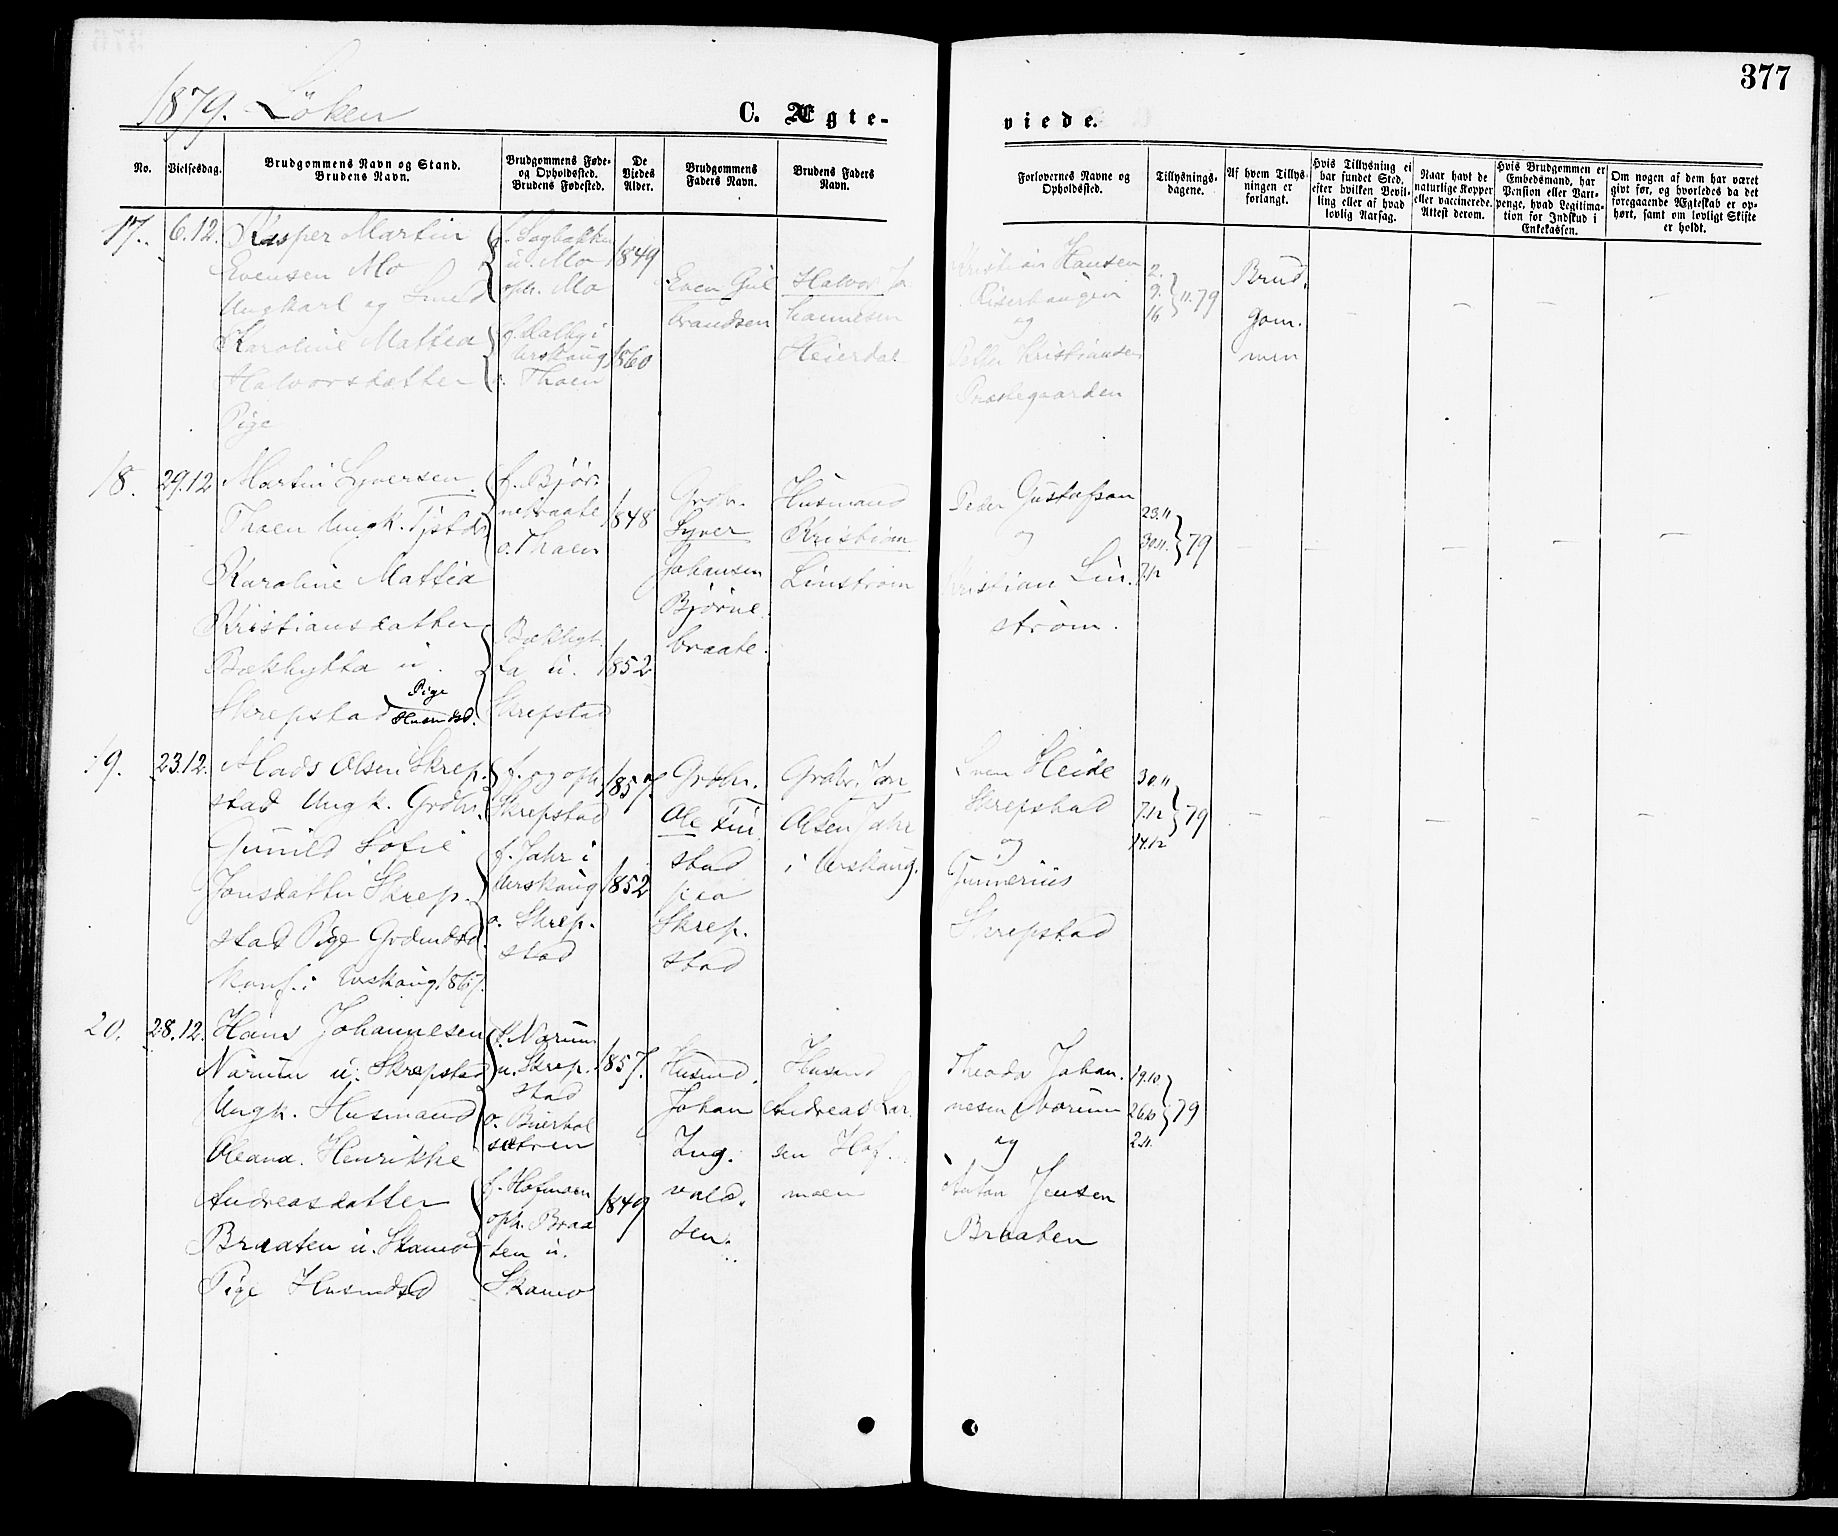 377
1879. Löken
C. Ægte-
viede.
No.
Vielsesdag.
Brudgommens Navn og Stand.
Brudens Navn.
Brudgommens Føde-
og Opholdssted.
Brudens Fødested.
De
Viedes
Alder.
Brudgommens
Faders Navn.
Brudens Faders
Navn.
Forlovernes Navne og
Opholdssted.
Tillysnings-
dagene.
Af hvem Tillys-
ningen er
forlangt.
Hvis Tillysning ei
har fundet Sted,
efter hvilken Bevil-
ling eller af hvad
lovlig Aarsag.
Naar havt de
naturlige Kopper
eller vaccinerede.
Attest derom.
Hvis Brudgommen er
Embedsmand, har
Pension eller Vart-
penge, hvad Legitima-
tion for Indskud i
Enkekassen.
Om nogen af dem har været
givt før, og hvorledes da det
foregaaende Ægteskab er op-
hørt, samt om lovligt Skifte
er holdt.
17. 6.12.
Kasper Martin
Evensen Mo
Ungkarl og Smed
Karoline Mattea
Halvorsdatter
Pige
f. Sagbakken
u. Mo
oph. Mo
f. Dalby i
Urskoug
o. Thoen
1849
1860
Even Gul
brandsen
Halvor Jo
hannesen
Heierdal
Kristian Hansen
Riserhaugen
og
Petter Kristiansen
Præstegaarden
2.
9. 11. 79
16
Brud.
gom.
men
18. 29.12
Martin Syversen
Thoen Ungk.
Karoline Mattea
Kristiansdatter
Bækhytta u.
Skrepstad Pige
Husmdsd.
f. Bjør-
nebraate
o. Thoen
Bækhyt-
ta u.
Skrepstad
1848
1852
Grdbr.
Syver
Johansen
Bjørne
braate.
Husmand
Kristian
Linstrøm
Peder Gustafsson
og
Kristian Lin.
strøm.
23.11
30.11. 79
7.12
19. 23.12.
Mads Olsen Skrep.
stad Ungk. Grdbr.
Gunild Sofie
Jonsdatter Skrep.
stad Pige Grdmdsd.
konf. i Urskoug 1867.
f. og oph.
Skrepstad
f. Jahr i
Urskoug
o. Skrep.
stad
1857.
1852
Grdbr.
Ole Fin
stad
paa
Skrep.
stad
Grdbr. Jon
Olsen Jahr
i Urskoug.
Sven Heide
Skrepstad
og
Gunnerius
Skrepstad
30.11
7.12 79
14.12
20. 28.12.
Hans Johannesen
Narum u. Skrepstad
Ungk. Husmand
Oleana Henrikke
Andreasdatter
Braaten u. Skamo
Pige Husmdsd
f. Narum
u. Skrep.
stad
o. Bierhol
sætren
f. Hofmoen
oph. Braa
ten u.
Skamo
1857.
1849
Husmd.
Johan
Ing.
vald.
sen.
Husmd
Andreas Lar
sen Hof
moen
Theodor Johan.
nesen Narum
og
Anton Jensen
Braaten
19.10
26.10 79
2.11.